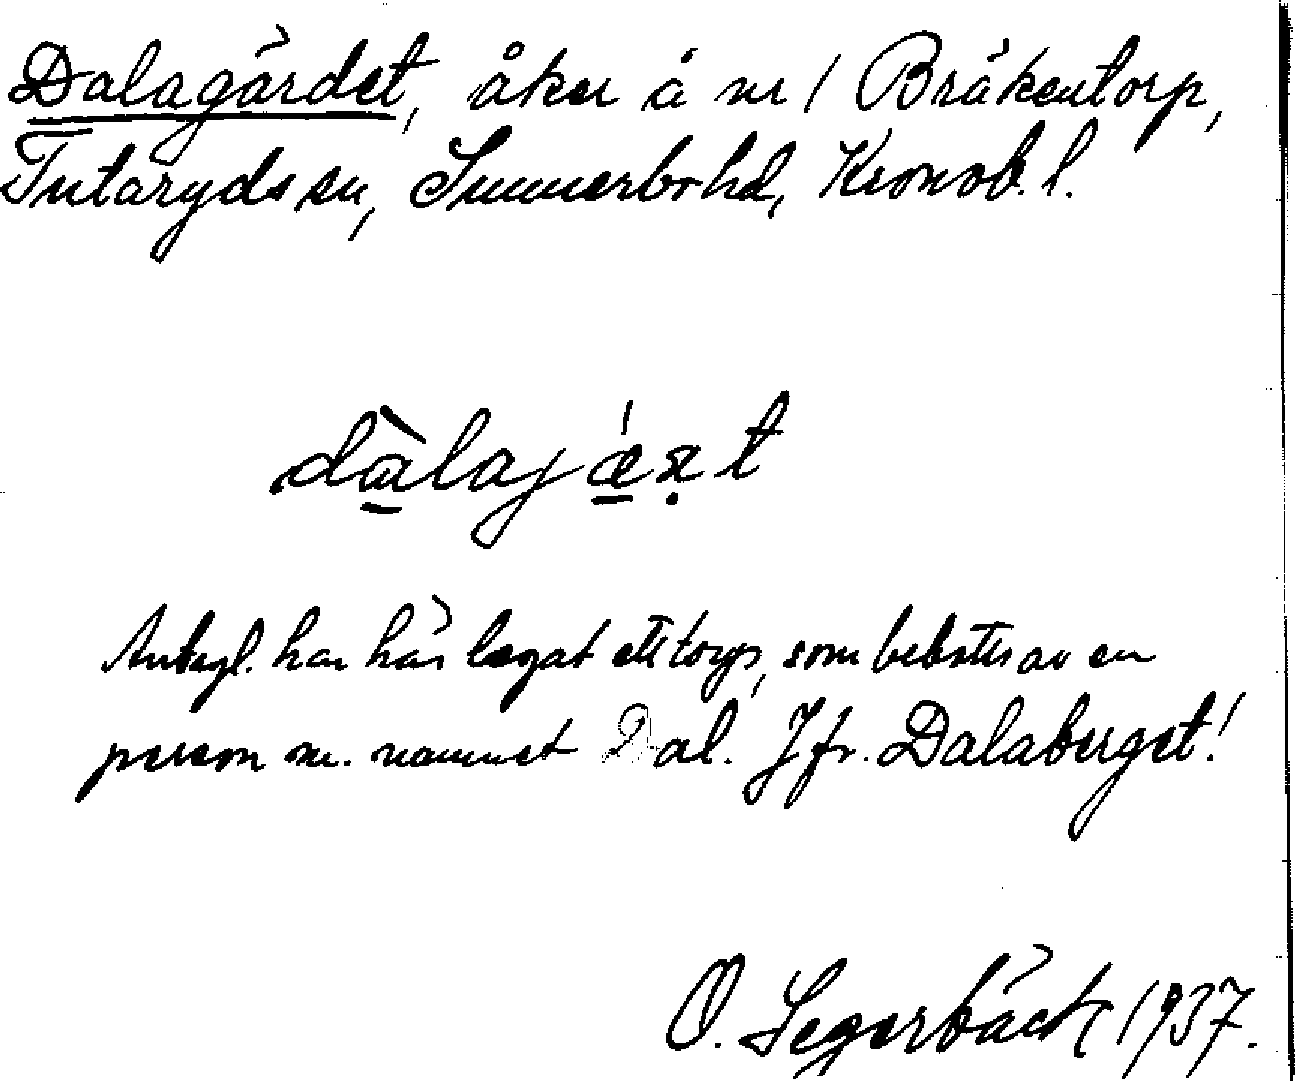 Dalagärdet, åker å nr 1 Bråkentorp,
Tutaryds sn, Sunnerbo hd, Kronob. l.
dàlajæ̀ṛt
Antagl. har här legat ett torp, som bebotts av en
person m. namnet Dal. Jfr. Dalaberget!
O. Segerbäck 1937.